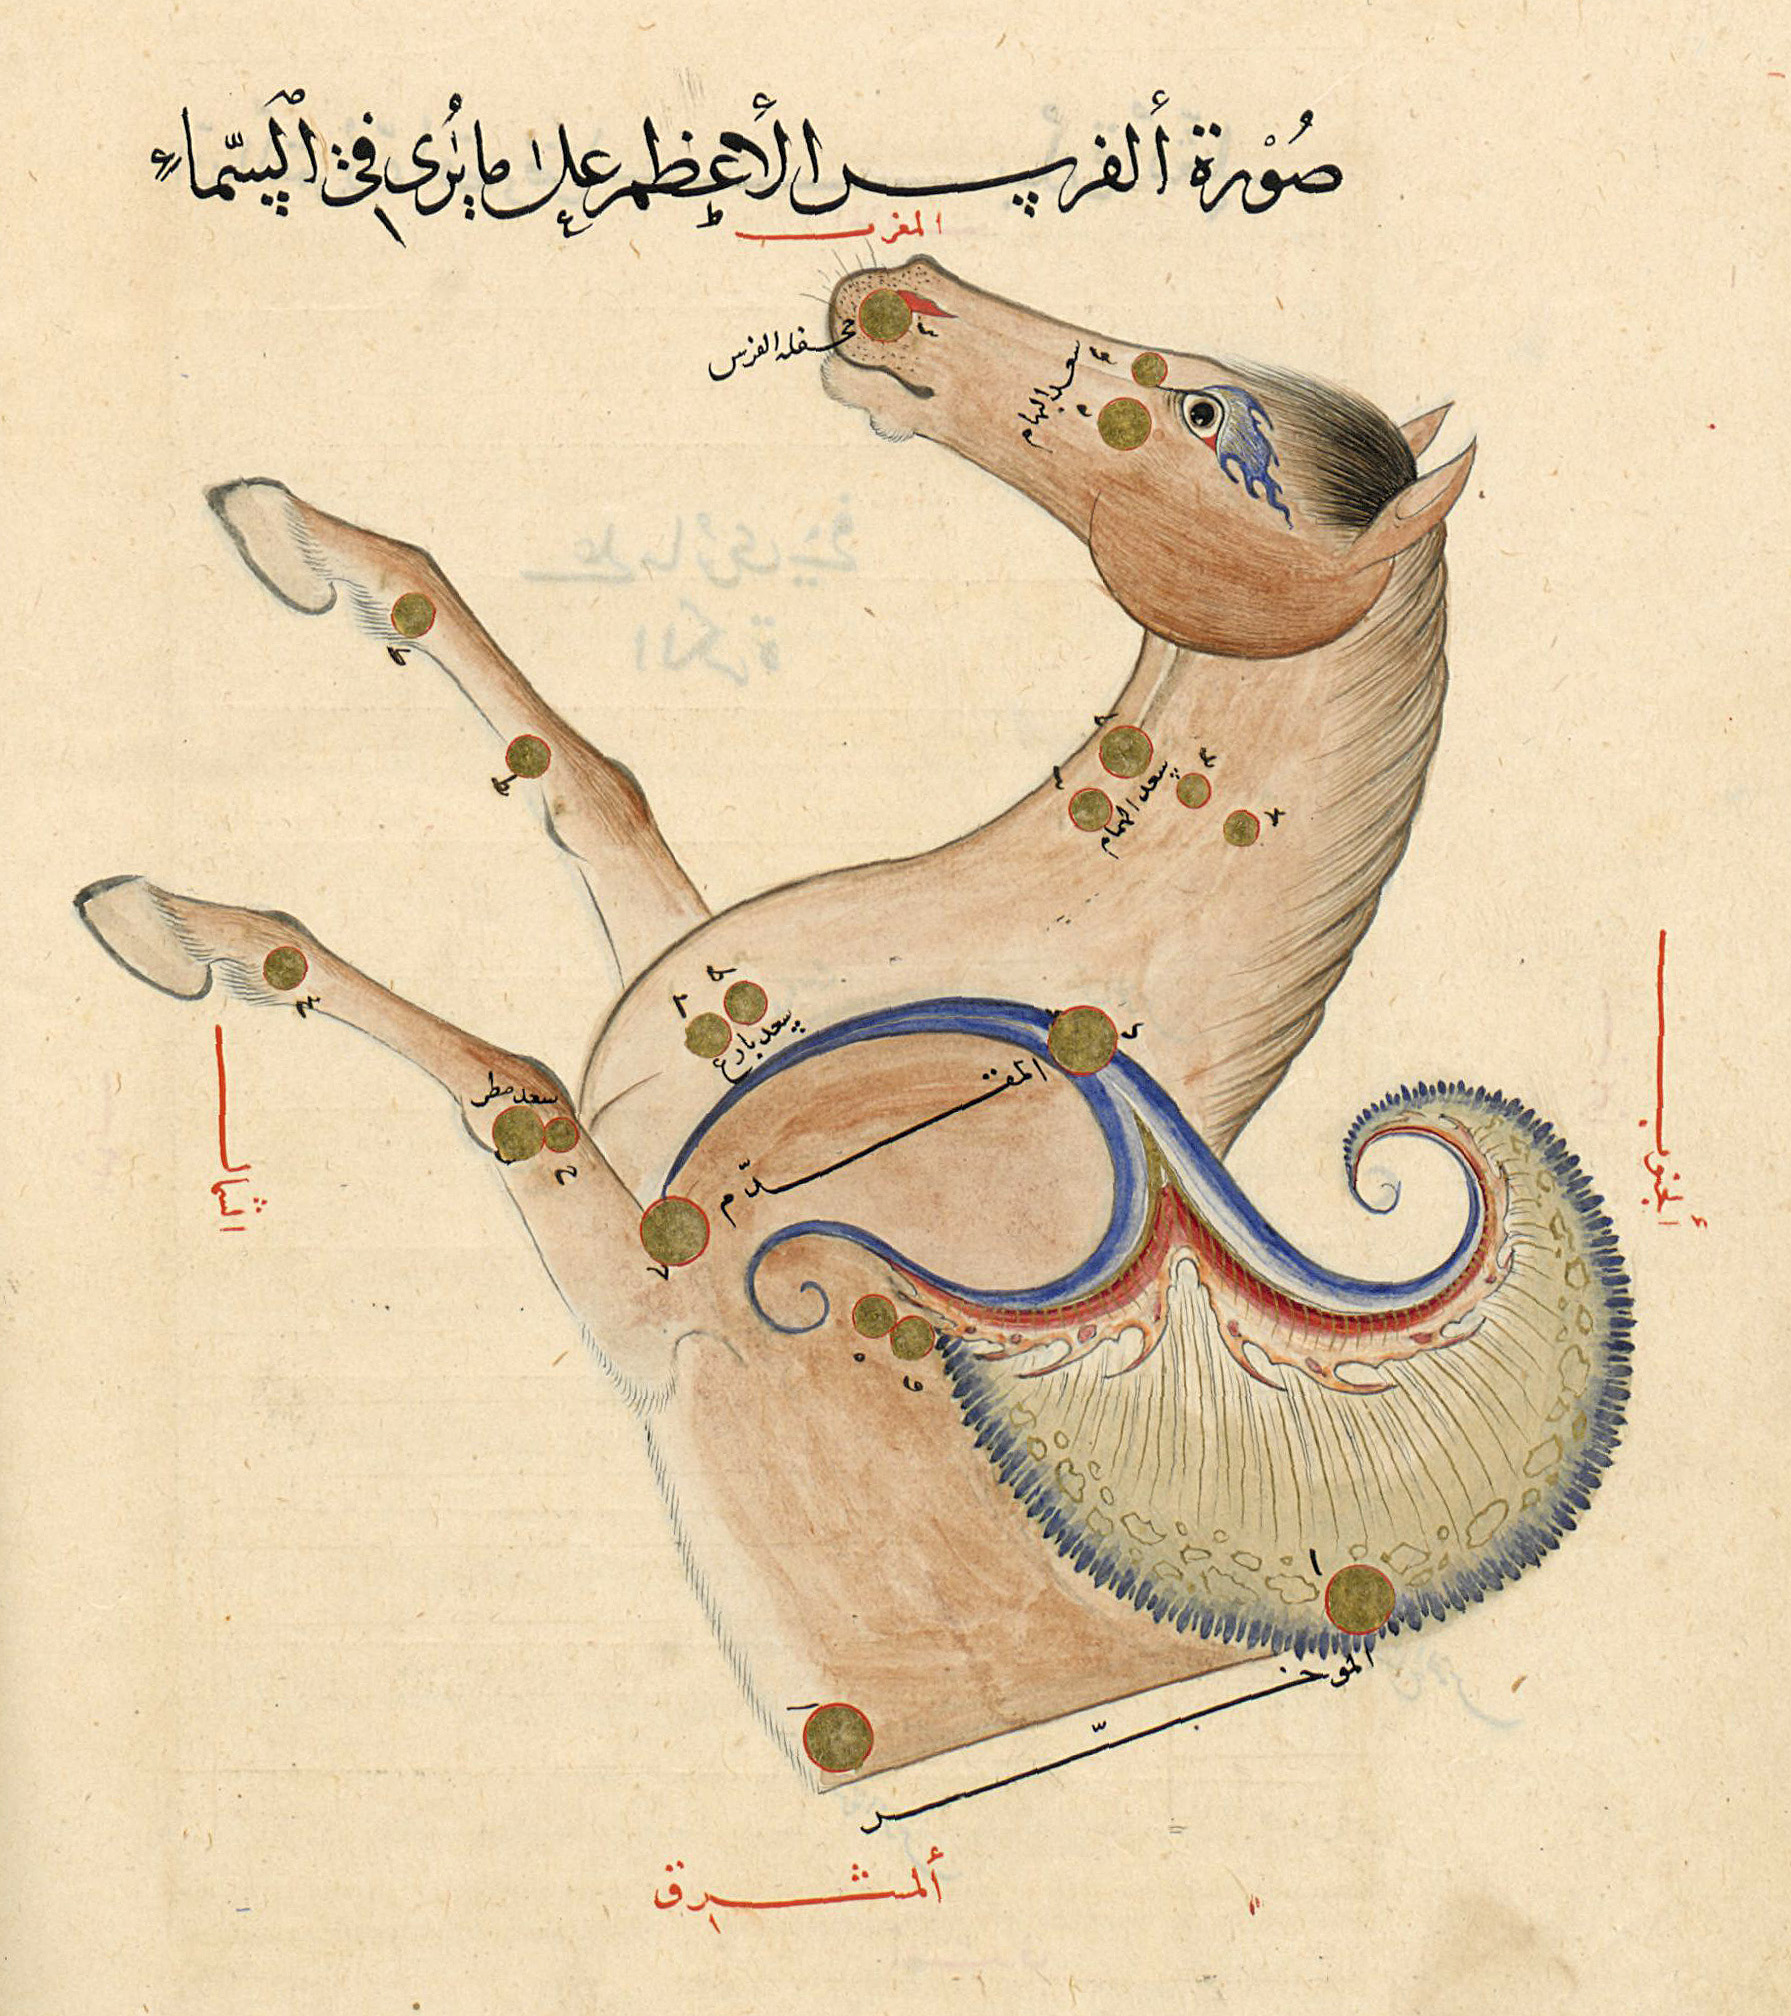 صُوْرة ألفرس الأعظم على ما يُرى في السّماء
المغرب
جحفلة الفرس
سعد البهام
سعد الهمام
سعد بارع
سعد مطر
المقدّم
الجنوب
الشمال
ا
المؤخّر
ألمشرق